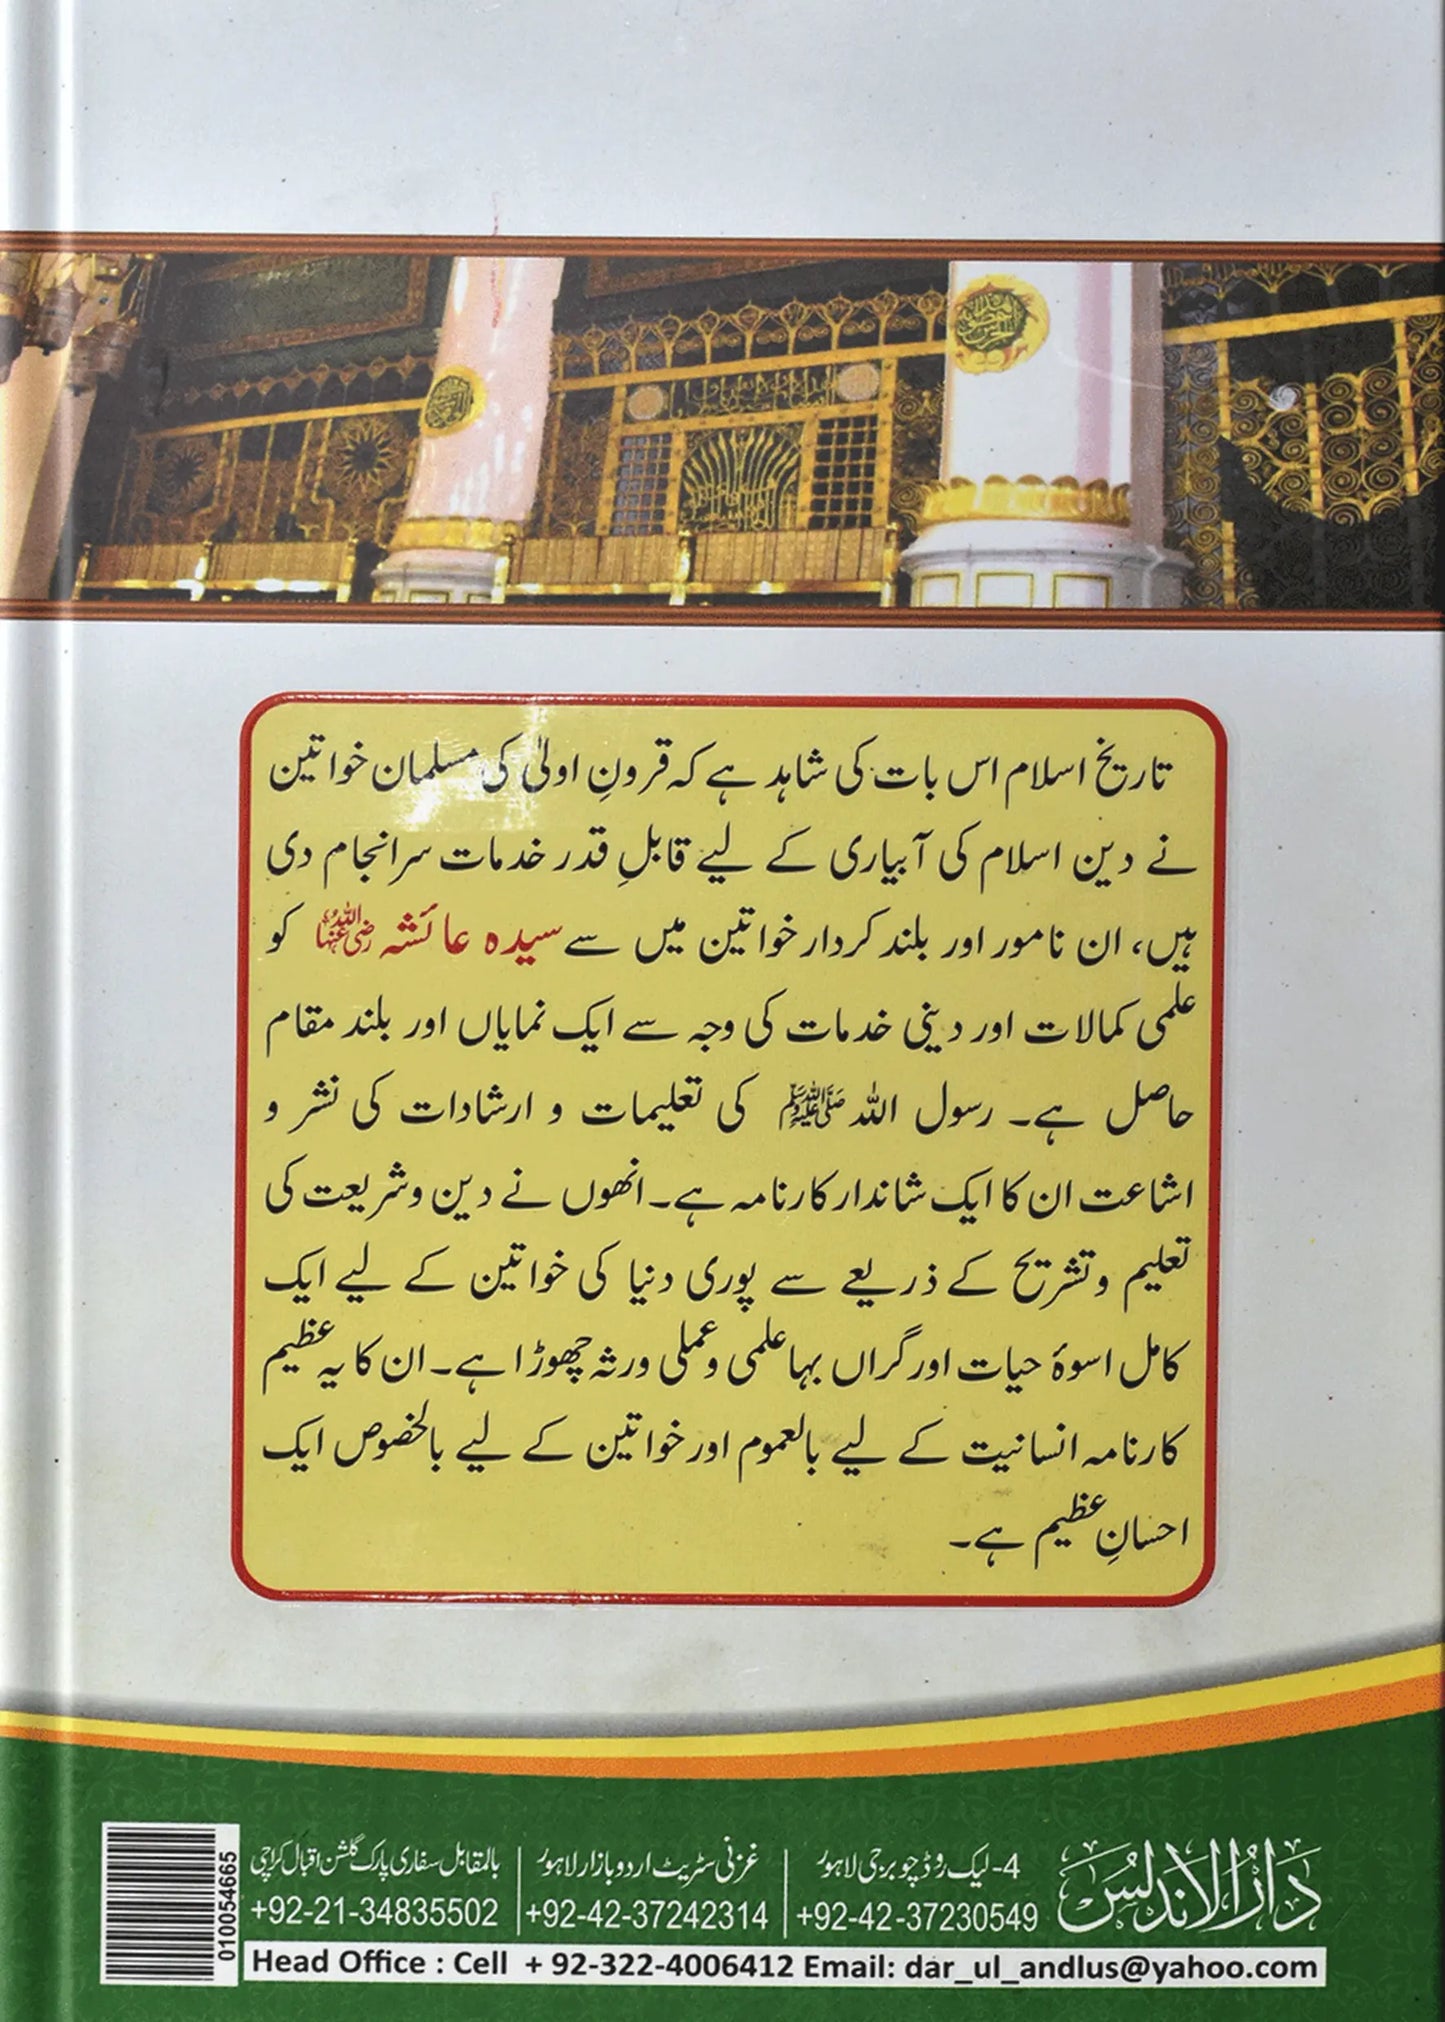 تاریخ اسلام اس بات کی شاہد ہے کہ قرونِ اولیٰ کی مسلمان خواتین
نے دین اسلام کی آبیاری کے لیے قابلِ قدر خدمات سرانجام دی
ہیں، ان نامور اور بلند کردار خواتین میں سے سیدہ عائشہ رضی اللہ عنہا کو
علمی کمالات اور دینی خدمات کی وجہ سے ایک نمایاں اور بلند مقام
حاصل ہے۔ رسول اللہ ﷺ کی تعلیمات و ارشادات کی نشر و
اشاعت ان کا ایک شاندار کارنامہ ہے۔ انھوں نے دین و شریعت کی
تعلیم و تشریح کے ذریعے سے پوری دنیا کی خواتین کے لیے ایک
کامل اسوۂ حیات اور گراں بہا علمی و عملی ورثہ چھوڑا ہے۔ ان کا یہ عظیم
کارنامہ انسانیت کے لیے بالعموم اور خواتین کے لیے بالخصوص ایک
احسانِ عظیم ہے۔
دارالاندلس
4- لیک روڈ چوبرجی لاہور
+92-42-37230549
غزنی سٹریٹ اردو بازار لاہور
+92-42-37242314
بالمقابل سفاری پارک گلشن اقبال کراچی
+92-21-34835502
010054665
Head Office : Cell + 92-322-4006412 Email: dar_ul_andlus@yahoo.com